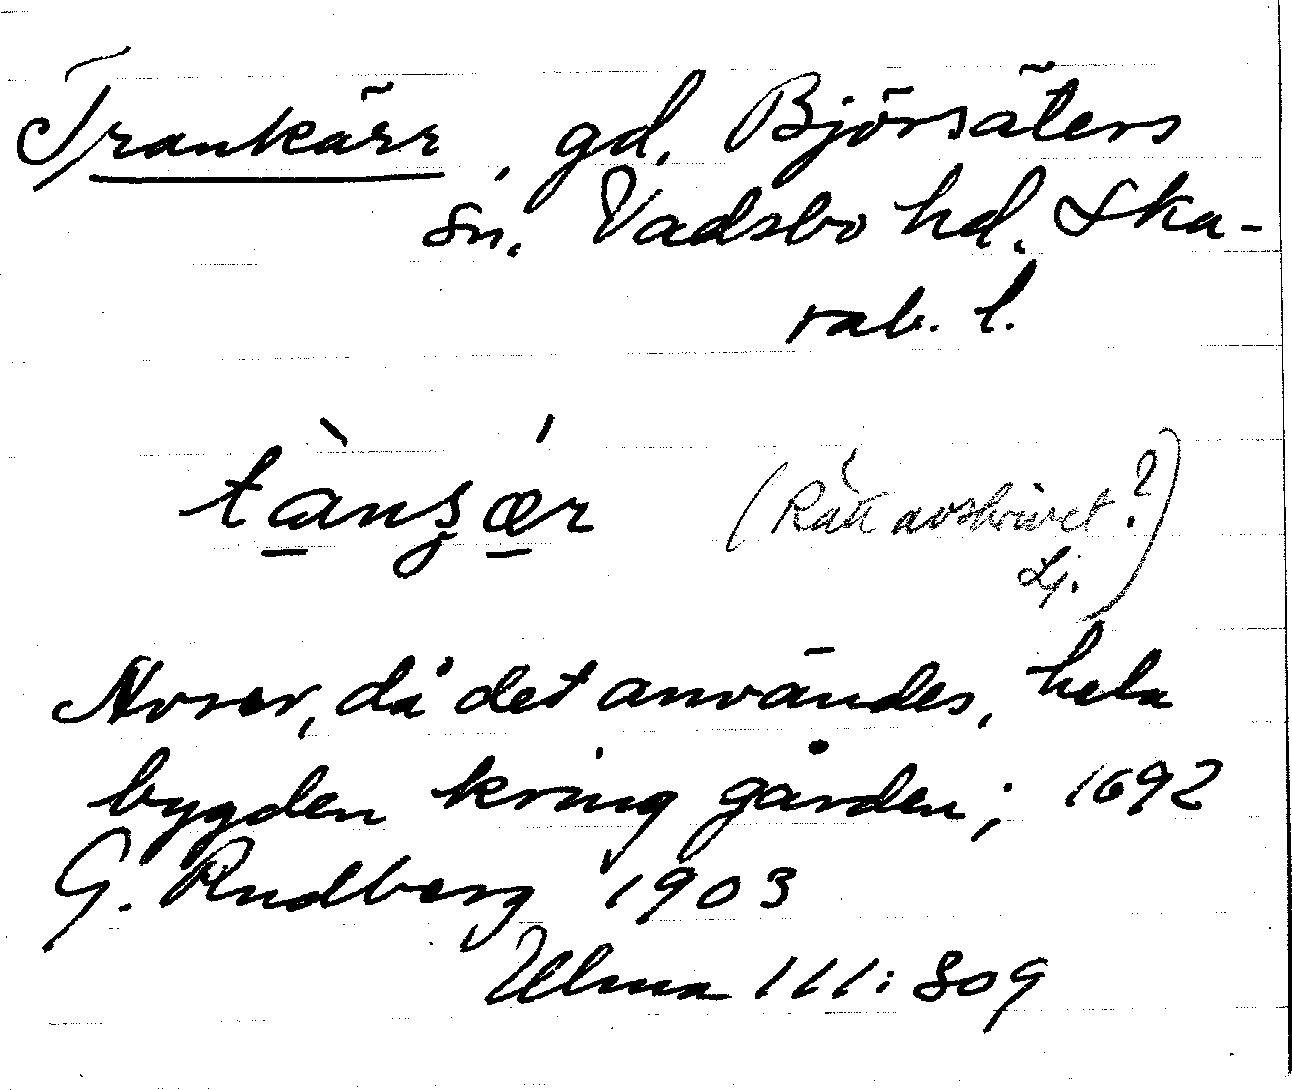 Trankärr, gd, Björsäters
sn. Vadsbo hd. Ska-
rab. l.
(Rätt avskrivet?
Lj.)
Avser, då det användes, hela
bygden kring gården; 1692
G. Rudberg 1903
Ulma 111:809